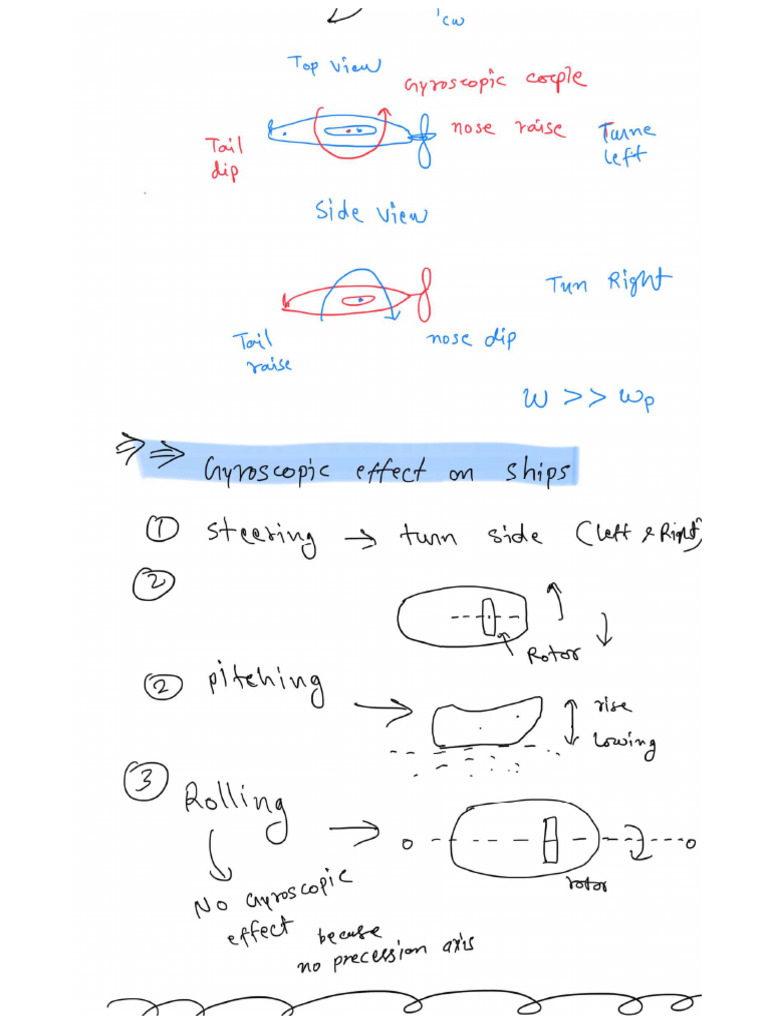 'cw
Top view
Gyroscopic cople
nose raise
Turne
left
Tail
dip
Side view
Tun Right
Tail
raise
nose dip
W >> Wp
⇒ ⇒ Gyroscopic effect on ships
① Steering → turn side (left & Right)
②
Rotor
② pitching →
rise
lowing
③ Rolling →
o o
rotor
No Gyroscopic
effect becuse
no precession axis